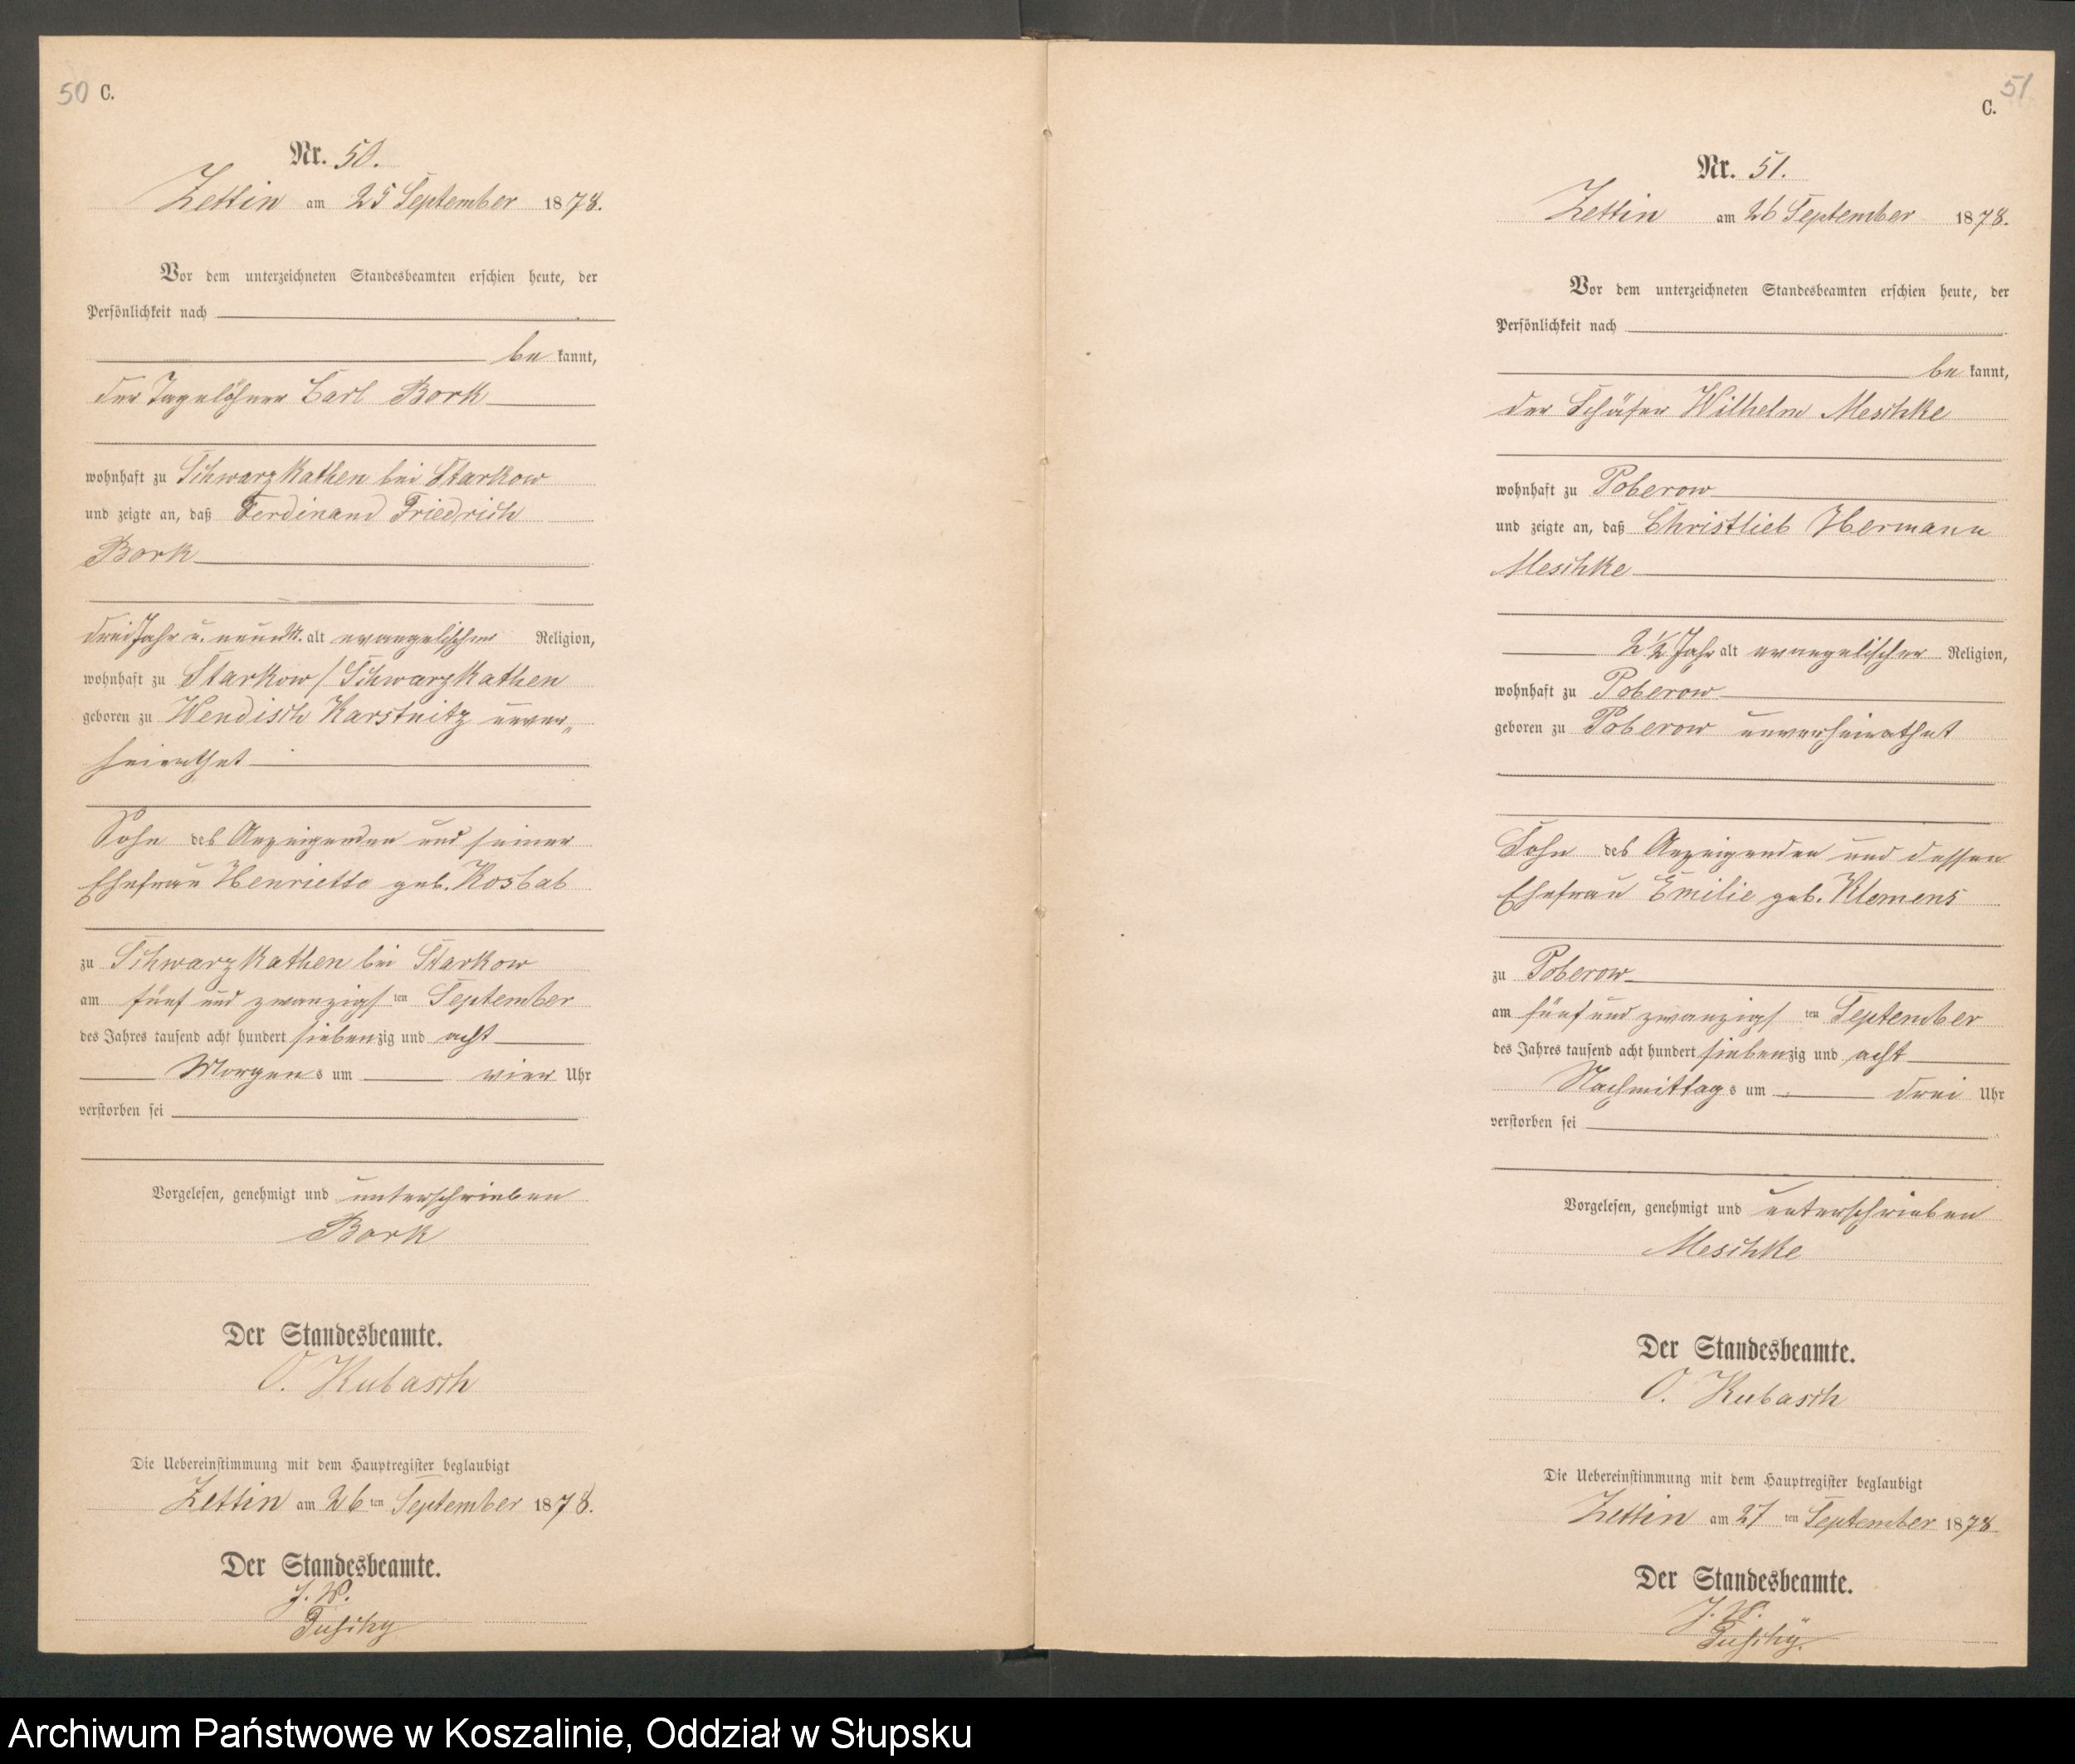 50 C.
Nr. 50.
Zettin am 25 September 1878.
Vor dem unterzeichneten Standesbeamten erschien heute, der
Persönlichkeit nach
be kannt,
der Tagelöhner Carl Bork
wohnhaft zu Schwarzkathen bei Starkow
und zeigte an, daß Ferdinand Friedrich
Bork
drei Jahr u. neun M. alt evangelischer Religion,
wohnhaft zu Starkow / Schwarzkathen
geboren zu Wendisch Karstnitz unver„
heirathet
Sohn des Anzeigenden und seiner
Ehefrau Henriette geb. Kosbab
zu Schwarzkathen bei Starkow
am fünf und zwanzigs ten September
des Jahres tausend acht hundert siebenzig und acht
Morgens um vier Uhr
verstorben sei
Vorgelesen, genehmigt und unterschrieben
Bork
Der Standesbeamte.
O. Kubasch
Die Uebereinstimmung mit dem Hauptregister beglaubigt
Zettin am 26 ten September 1878.
Der Standesbeamte.
J. V.
51
C.
Nr. 51.
Zettin am 26 September 1878.
Vor dem unterzeichneten Standesbeamten erschien heute, der
Persönlichkeit nach
be kannt,
der Schäfer Wilhelm Meschke
wohnhaft zu Poberow
und zeigte an, daß Christlieb Hermann
Meschke
2 1/2 Jahr alt evangelischer Religion,
wohnhaft zu Poberow
geboren zu Poberow unverheirathet
Sohn des Anzeigenden und dessen
Ehefrau Emilie geb. Klemens
zu Poberow
am fünf und zwanzigs ten September
des Jahres tausend acht hundert siebenzig und acht
Nachmittags um drei Uhr
verstorben sei
Vorgelesen, genehmigt und unterschrieben
Meschke
Der Standesbeamte.
O. Kubasch
Die Uebereinstimmung mit dem Hauptregister beglaubigt
Zettin am 27 ten September 1878
Der Standesbeamte.
J. V.
Archiwum Państwowe w Koszalinie, Oddział w Słupsku